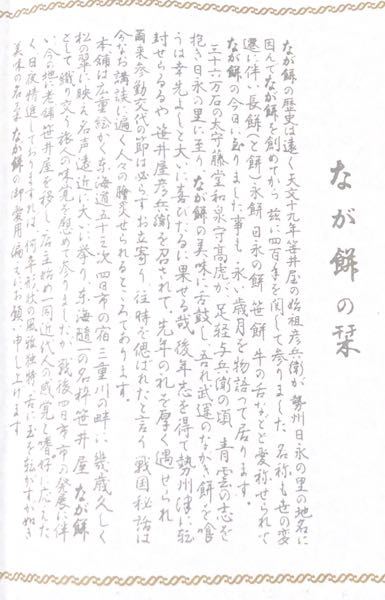 なが餅の栞
なが餅の歴史は遠く天文十九年笹井屋の始祖彦兵衛が勢州日永の里の地名に
因んでなが餅を創めてから茲に四百年を関して参りました 名称も世の変
遷に伴い長餅(と餅)永餅 日永の餅 笹餅 牛の舌などと変称せられて
なが餅の今日に至りました事も 永い歳月を物語って居ります。
三十六万石の太守 藤堂和泉守高虎が足軽与兵衛の頃 青雲の志を
抱き日永の里に至り なが餅の美味に舌鼓し 吾れ武運のながき餅を喰
うは幸先よしと大いに喜びたるに果せる哉 後年志を得て勢州津に転
封せらるるや笹井屋彦兵衛を召されて 先年の礼を厚く遇せられ
爾来参勤交代の節は必らずお立寄り 往時を偲ばれたと言う 戦国秘話は
今なお講談に遍く人々の膾炙せられるところであります。
本舗は広重絵がく東海道五十三次 四日市の宿 三重川の畔に幾歳久しく
松の翠に映え名声遠近に大いに挙り 東海随一の名物笹井屋 なが餅
として織り交う旅人の味覚を慰めて参りましたが 戦後四日市市の発展に伴
い 今の地に老舗笹井屋を移し 店主始め一同近代人の感覚と嗜好に応えた
く日夜精進しておりますれば 何卒形状の風雅独特 舌に玉を転がすが如き
美味の名菓 なが餅の御愛用偏えにお願い申し上げます